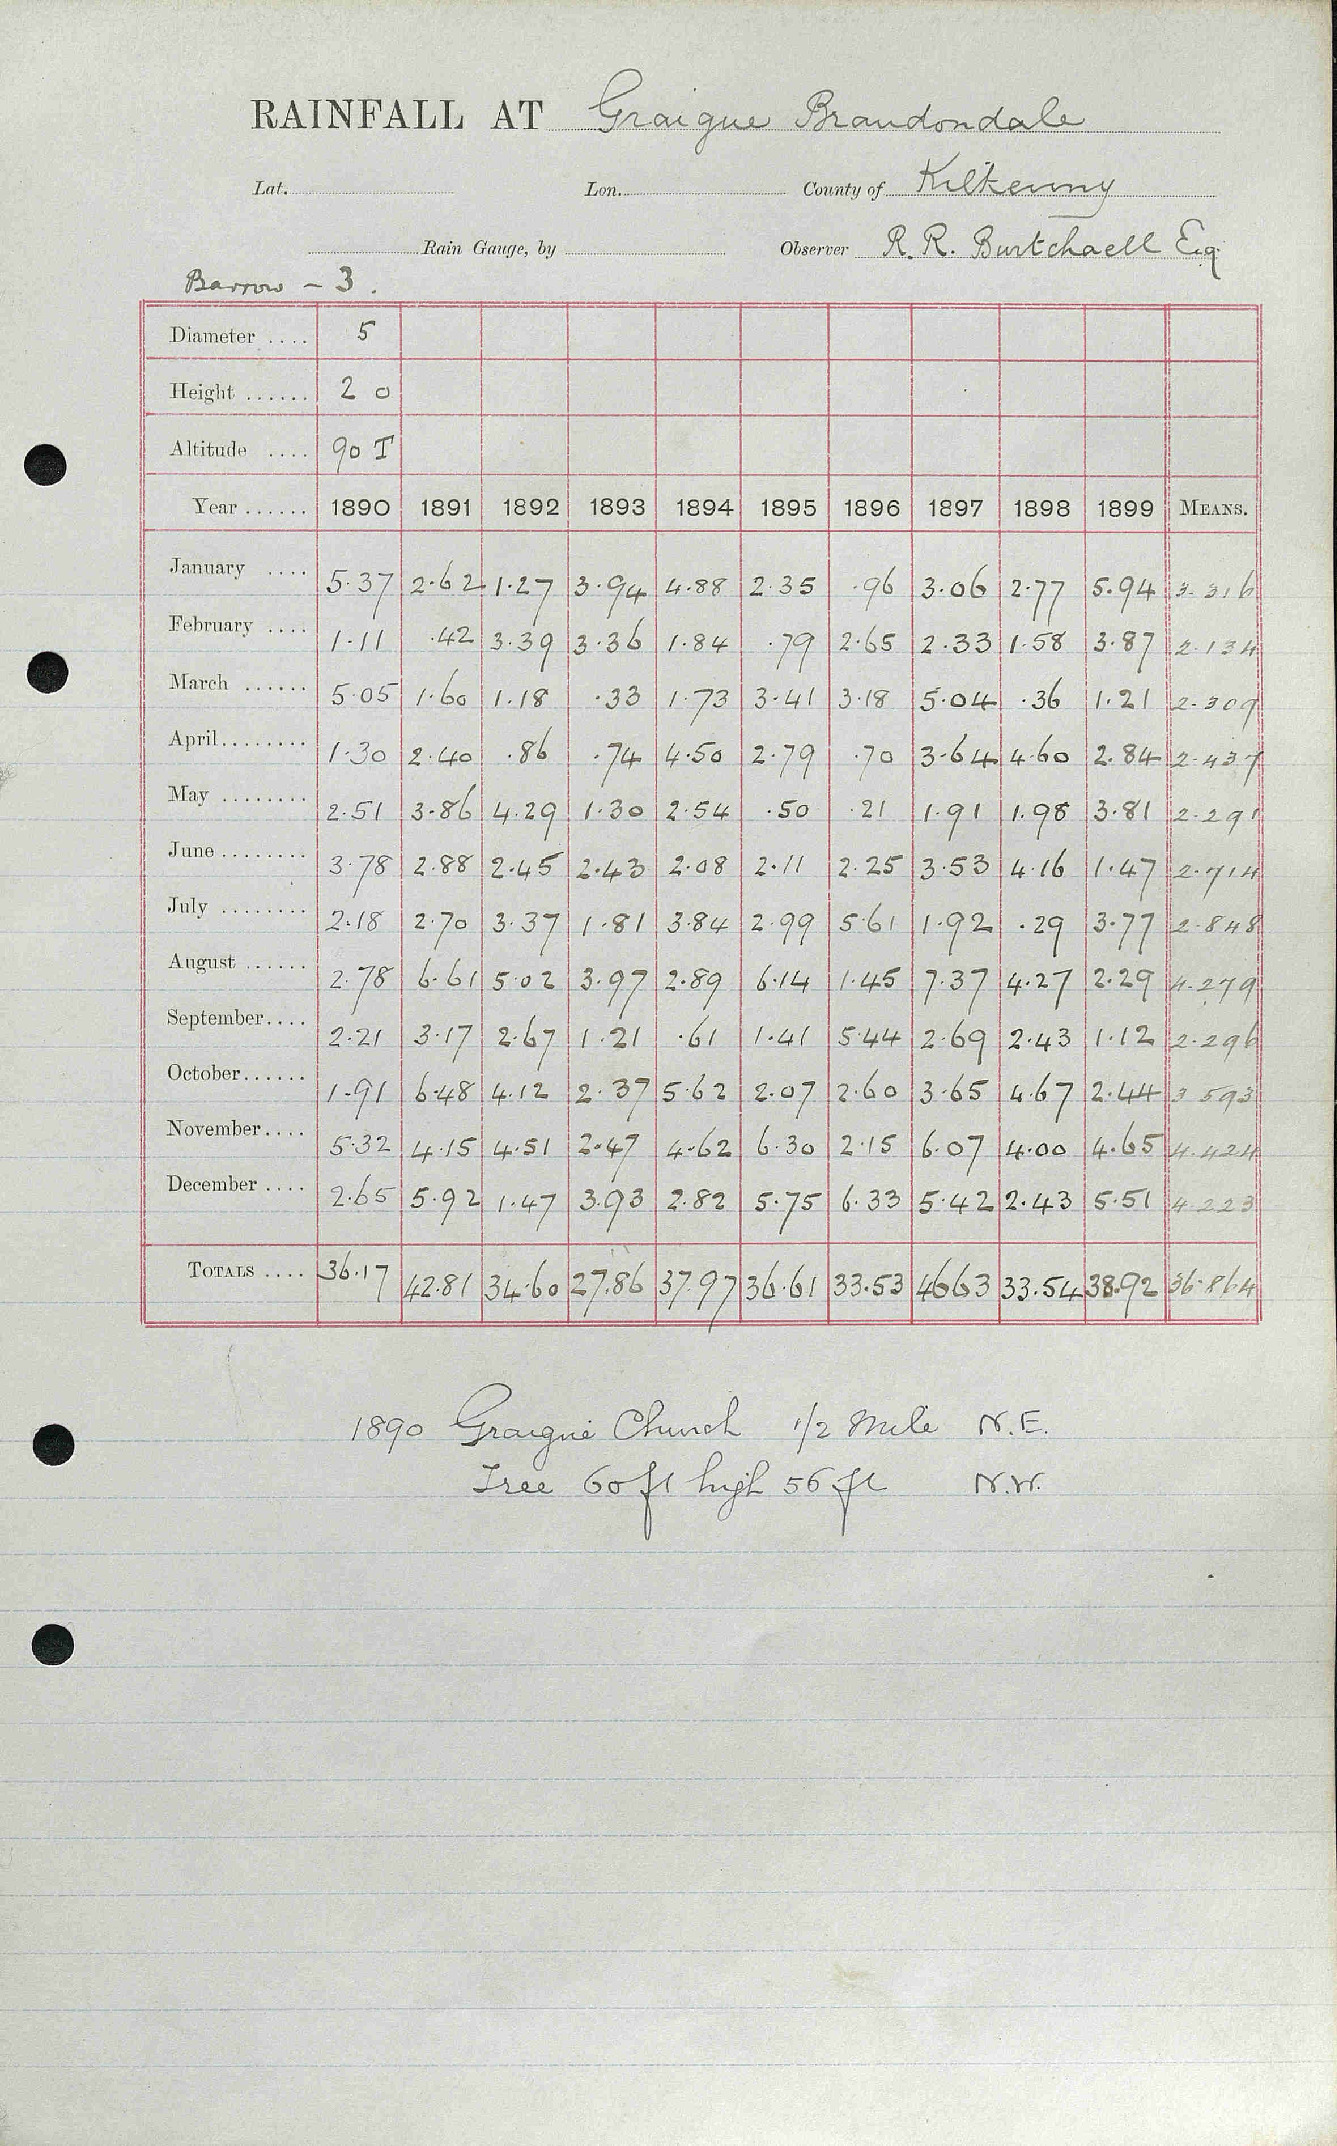 RAINFALL AT Graigue Brandondale
Lat. Lon. County of Kilkenny
Rain Gauge, by Observer R. R. Burtchaell Esq
Barrow - 3.
Diameter .... 5
Height ...... 2 0
Altitude .... 90 T
Year ...... 1890 1891 1892 1893 1894 1895 1896 1897 1898 1899 MEANS.
January .... 5.37 2.62 1.27 3.94 4.88 2.35 .96 3.06 2.77 5.94 3.316
February .... 1.11 .42 3.39 3.36 1.84 .79 2.65 2.33 1.58 3.87 2.134
March ...... 5.05 1.60 1.18 .33 1.73 3.41 3.18 5.04 .36 1.21 2.309
April ........ 1.30 2.40 .86 .74 4.50 2.79 .70 3.64 4.60 2.84 2.437
May ........ 2.51 3.86 4.29 1.30 2.54 .50 .21 1.91 1.98 3.81 2.291
June ........ 3.78 2.88 2.45 2.43 2.08 2.11 2.25 3.53 4.16 1.47 2.714
July ........ 2.18 2.70 3.37 1.81 3.84 2.99 5.61 1.92 .29 3.77 2.848
August ...... 2.78 6.61 5.02 3.97 2.89 6.14 1.45 7.37 4.27 2.29 4.279
September.... 2.21 3.17 2.67 1.21 .61 1.41 5.44 2.69 2.43 1.12 2.296
October...... 1.91 6.48 4.12 2.37 5.62 2.07 2.60 3.65 4.67 2.44 3.593
November.... 5.32 4.15 4.51 2.47 4.62 6.30 2.15 6.07 4.00 4.65 4.424
December .... 2.65 5.92 1.47 3.93 2.82 5.75 6.33 5.42 2.43 5.51 4.223
TOTALS .... 36.17 42.81 34.60 27.86 37.97 36.61 33.53 46.63 33.54 38.92 36.864
1890 Graigue Church 1/2 Mile N.E.
Tree 60 ft high 56 ft N.W.